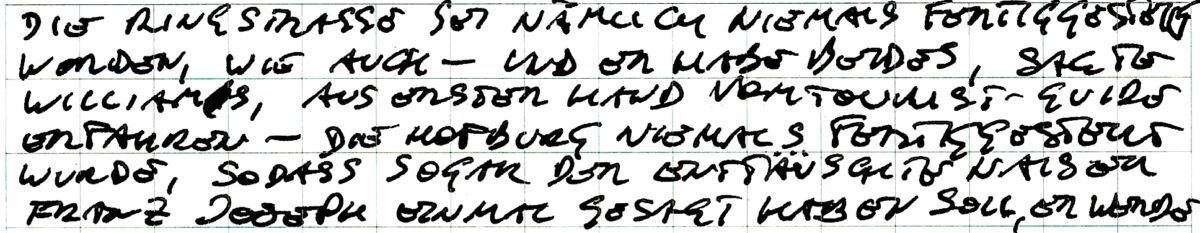 DIE RINGSTRASSE SEI NÄMLICH NIEMALS FERTIGGESTELLT
WORDEN, WIE AUCH — UND ER HABE BEIDES, SAGTE
WILLIAMS, AUS ERSTER HAND VOM TOURIST-GUIDE
ERFAHREN — DIE HOFBURG NIEMALS FERTIGGESTELLT
WURDE, SODASS SOGAR DER ENTTÄUSCHTE KAISER
FRANZ JOSEPH EINMAL GESAGT HABEN SOLL, ER WERDE